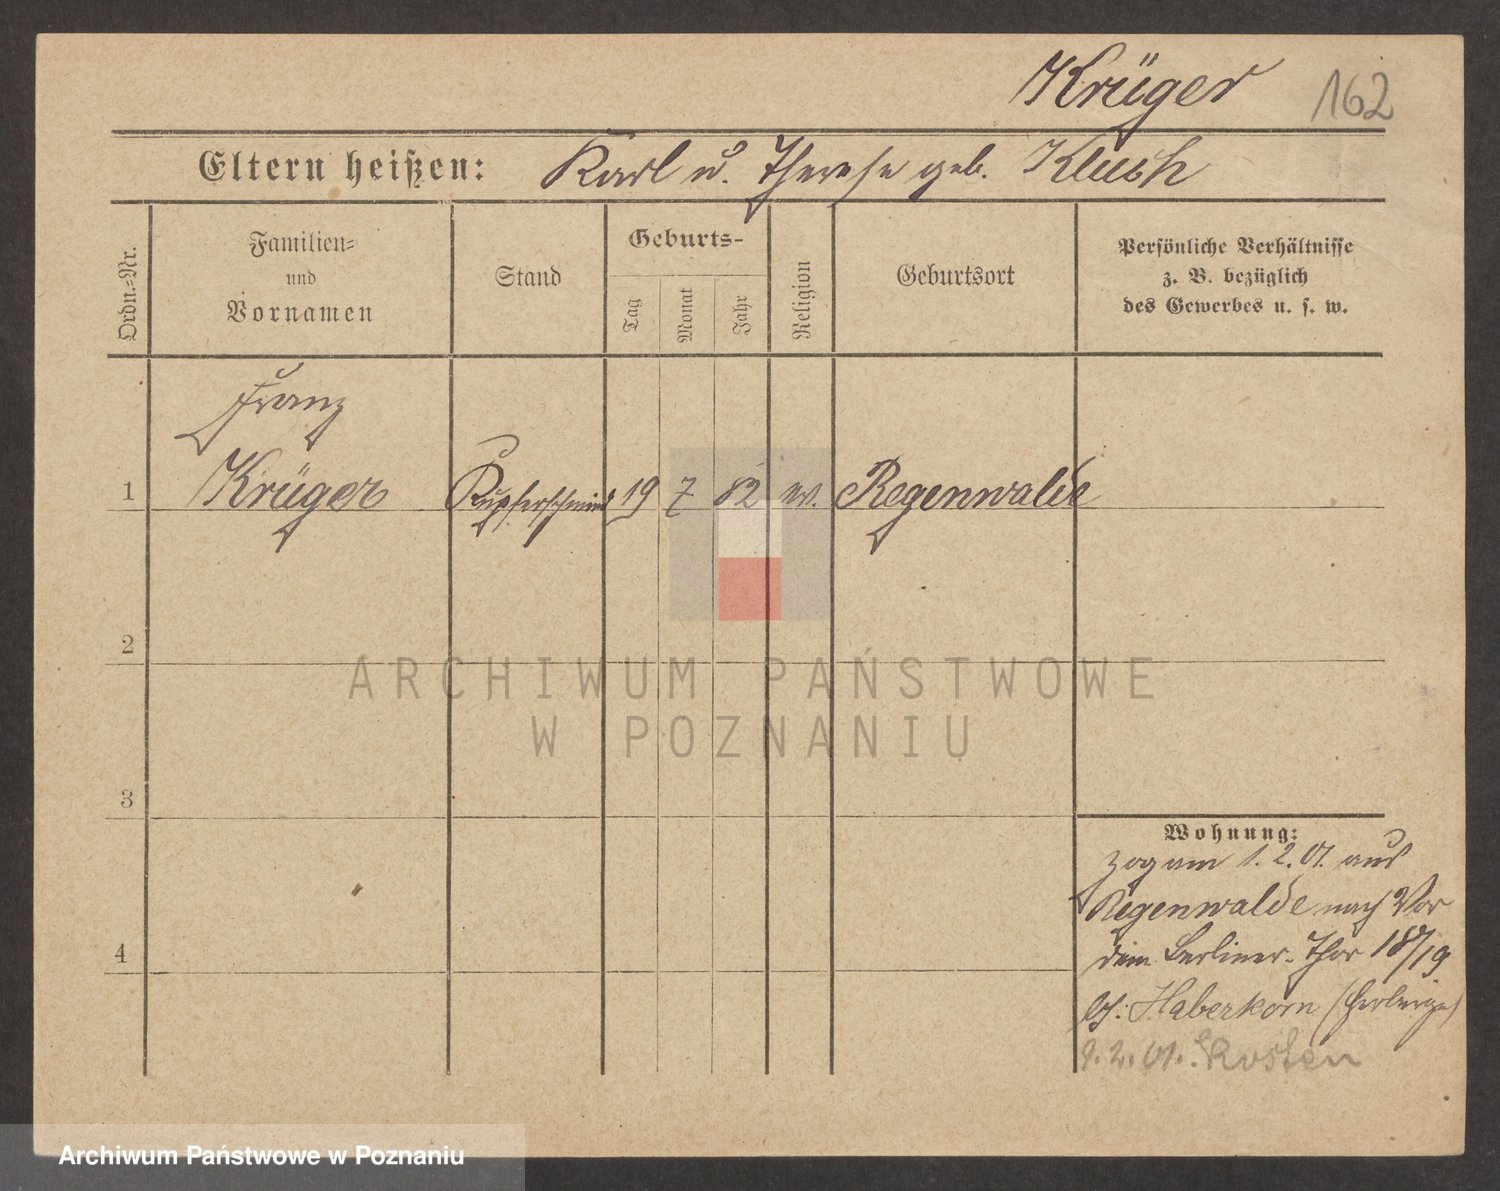 Krüger 162
Eltern heißen: Karl u. Therese geb. Klush
Ordn.-Nr.
Familien-
und
Vornamen
Stand
Geburts-
Tag
Monat
Jahr
Religion
Geburtsort
Persönliche Verhältnisse
z. B. bezüglich
des Gewerbes u. s. w.
Franz
1 Krüger Kupferschmied 19 7 82 ev. Regenwalde
2
ARCHIWUM PAŃSTWOWE
W POZNANIU
3
Wohnung:
zog am 1. 2. 01. aus
Regenwalde nach Vor
4
dem Berliner-Thor 18/19
bei Haberkorn (Herberge)
9. 2. 01. Kosten
Archiwum Państwowe w Poznaniu